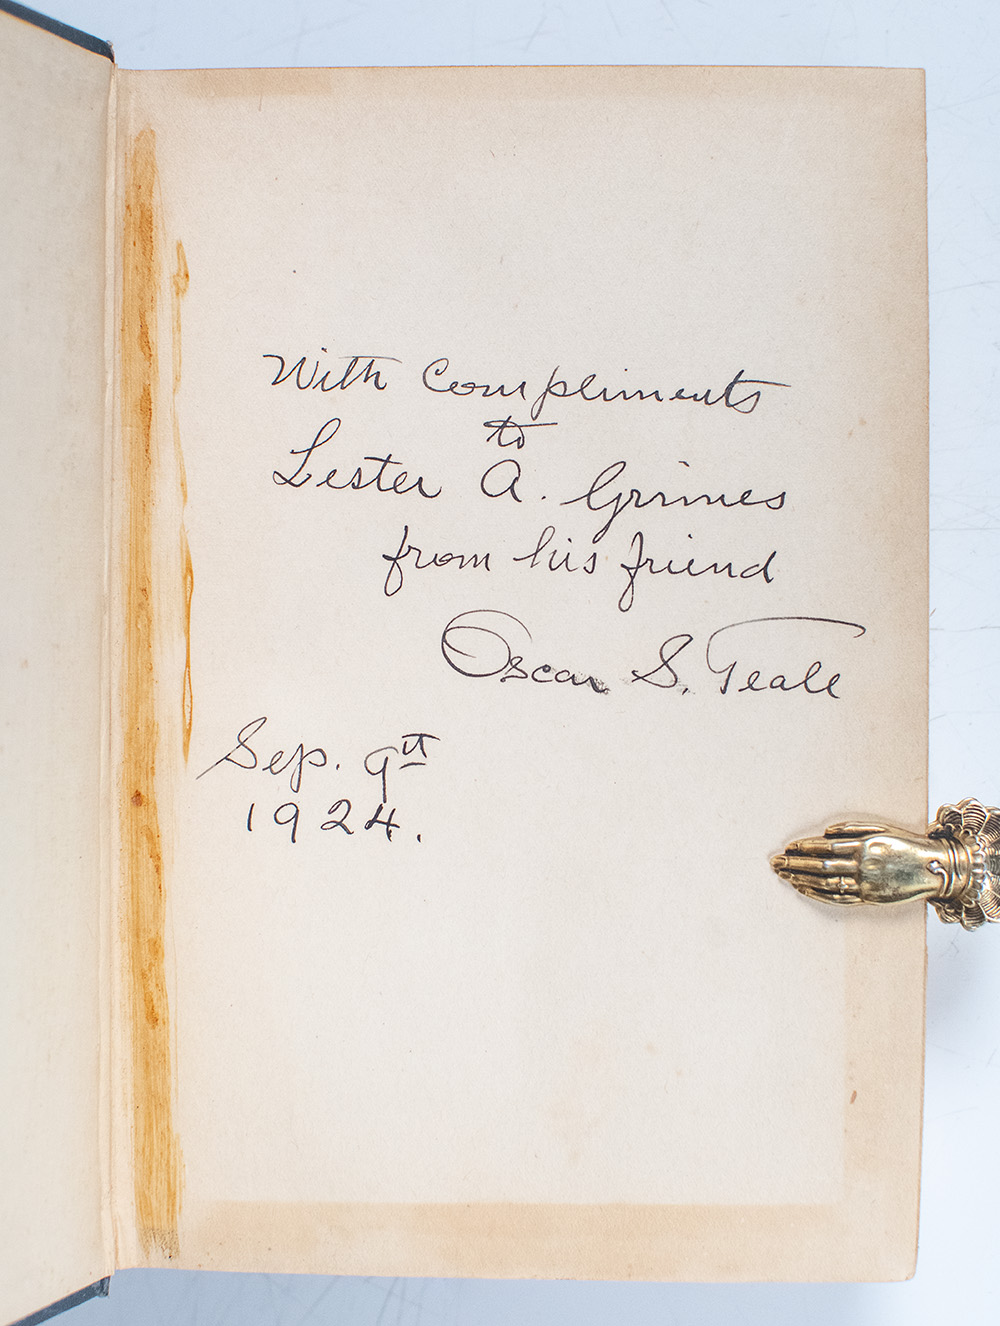 With Compliments
to
Lester A. Grimes
from his friend
Oscar S. Teale
Sep. 9th
1924.